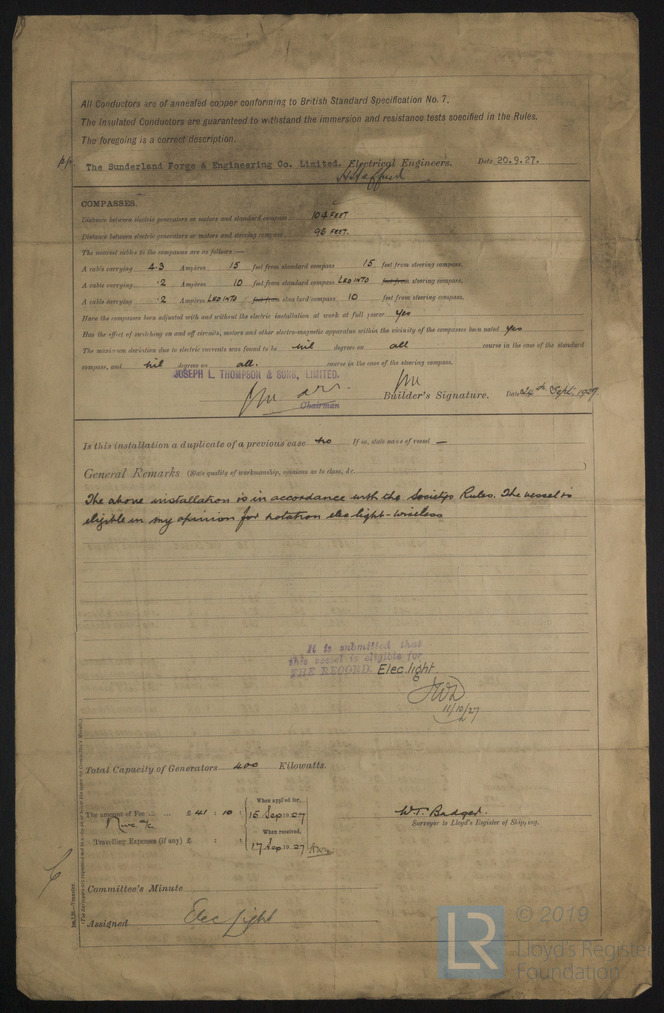 All Conductors are of annealed copper conforming to British Standard Specification No. 7.
The Insulated Conductors are guaranteed to withstand the immersion and resistance tests specified in the Rules.
The foregoing is a correct description.
pp. The Sunderland Forge & Engineering Co. Limited. Electrical Engineers. Date 20.9.27.
COMPASSES.
Distance between electric generators or motors and standard compass 104 FEET
Distance between electric generators or motors and steering compass 96 FEET.
The nearest cables to the compasses are as follows:—
A cable carrying 4.3 Ampères 15 feet from standard compass 15 feet from steering compass.
A cable carrying .2 Ampères 10 feet from standard compass LED INTO feet from steering compass.
A cable carrying .2 Ampères LED INTO feet from standard compass 10 feet from steering compass.
Have the compasses been adjusted with and without the electric installation at work at full power yes
Has the effect of switching on and off circuits, motors and other electro-magnetic apparatus within the vicinity of the compasses been noted yes
The maximum deviation due to electric currents was found to be nil degrees on all course in the case of the standard
compass, and nil degrees on all. course in the case of the steering compass.
JOSEPH L. THOMPSON & SONS, LIMITED.
Chairman
Builder's Signature. Date 24th Sept. 1927
Is this installation a duplicate of a previous case no If so, state name of vessel —
General Remarks (State quality of workmanship, opinions as to class, &c.
The above installation is in accordance with the Societys Rules. The vessel is
eligible in my opinion for notation elec light - wireless
It is submitted that
this vessel is eligible for
THE RECORD. Elec. light.
11/10/27
Total Capacity of Generators 400 Kilowatts.
The amount of Fee ... £ 41 : 10 :
When applied for,
15 Sep 1927
Travelling Expenses (if any) £ : :
When received,
17 Sep 1927
W.T. Badger.
Surveyor to Lloyd's Register of Shipping.
Committee's Minute
Assigned Elec Light
LR © 2019
Lloyd's Register
Foundation